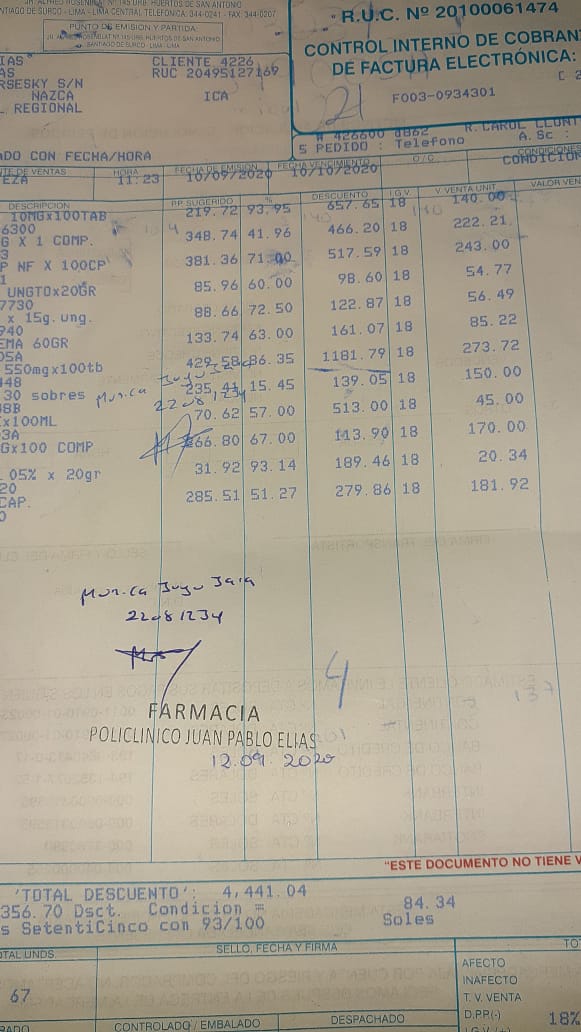 SANTIAGO DE SURCO - LIMA - LIMA CENTRAL TELEFONICA: 344-0241 - FAX: 344-0207
PUNTO DE EMISIÓN Y PARTIDA:
SANTIAGO DE SURCO - LIMA - LIMA
R.U.C. Nº 20100061474
CONTROL INTERNO DE COBRAN
DE FACTURA ELECTRÓNICA:
C 2
F003-0934301
21
IAS
CLIENTE 4226
AS
RUC 20495127169
RSESKY S/N
NAZCA
ICA
REGIONAL
# 426600 d862
S PEDIDO : Telefono
A. Sc :
ADO CON FECHA/HORA
NTE DE VENTAS
HORA
FECHA DE EMISIÓN
FECHA VENCIMIENTO
O/C
CONDICIONES
EZA
11:23
10/09/2020
10/10/2020
CONDICION
DESCRIPCION
P.P. SUGERIDO
%
DESCUENTO
I.G.V.
V. VENTA UNIT.
VALOR VEN
10MGx100TAB
219.72 93.95 657.65 18 140.00
6300
G X 1 COMP.
348.74 41.96 466.20 18 222.21
3
P NF X 100CP
381.36 71.00 517.59 18 243.00
1
UNGTOx20GR
85.96 60.00 98.60 18 54.77
7730
x 15g. ung.
88.66 72.50 122.87 18 56.49
940
EMA 60GR
133.74 63.00 161.07 18 85.22
05A
550mgx100tb
429.58 86.35 1181.79 18 273.72
448
30 sobres
235.41 15.45 139.05 18 150.00
48B
x100ML
70.62 57.00 513.00 18 45.00
3A
Gx100 COMP
266.80 67.00 113.90 18 170.00
.05% x 20gr
31.92 93.14 189.46 18 20.34
20
CAP.
285.51 51.27 279.86 18 181.92
0
22081234
22081234
4
137
FARMACIA
POLICLINICO JUAN PABLO ELIAS
12.09.2020
"ESTE DOCUMENTO NO TIENE V
'TOTAL DESCUENTO': 4,441.04
356.70 Dsct. Condicion = 84.34
s SetentiCinco con 93/100 Soles
OTAL UNDS.
SELLO, FECHA Y FIRMA
TO
67
AFECTO
INAFECTO
T. V. VENTA
D.P.P.(-)
I.G.V. (+)
18%
CONTROLADO / EMBALADO
DESPACHADO